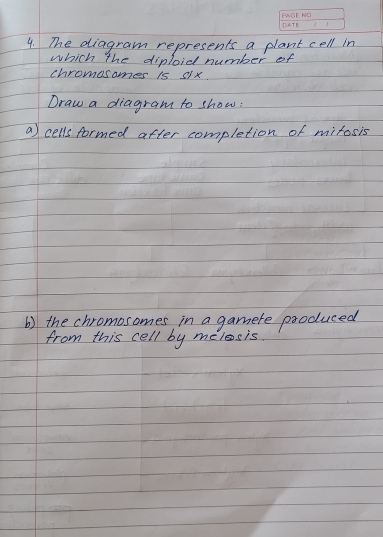 PAGE NO
DATE / /
4. The diagram represents a plant cell in
which the diploid number of
chromosomes is six
Draw a diagram to show:
a) cells formed after completion of mitosis
b) the chromosomes in a gamete produced
from this cell by meiosis.